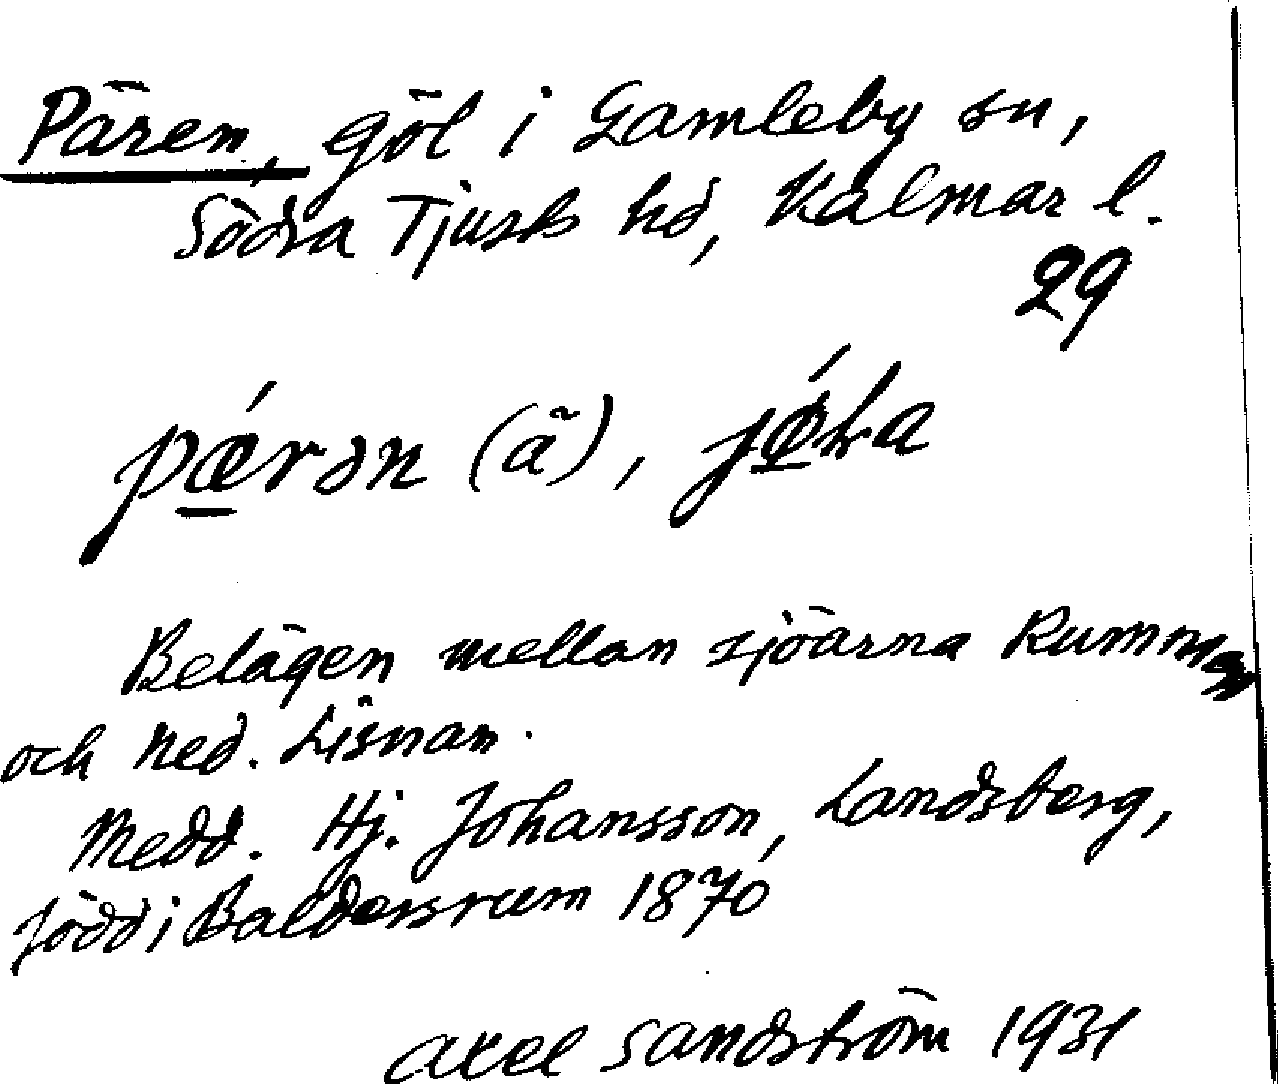 Pären, göl i Gamleby sn,
Södra Tjusts hd, Kalmar l.
29
pǽrən (ã),
Belägen mellan sjöarna Rummen
och Ned. Lisnan.
Medd. Hj. Johansson, Landsberg,
född i Baldersrum 1870
Axel Sandström 1931